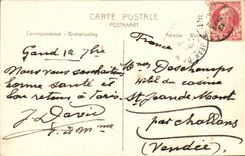 CARTE POSTALE
POSTKAART
Correspondance - Briefwisseling
Gand 12 7bre
Nous vous souhaitons
bonne santé et
bon retour à Paris
J. David
France
Mr Deschamps
hôtel du casino
St Jean de Mont
par Challans
(Vendée)